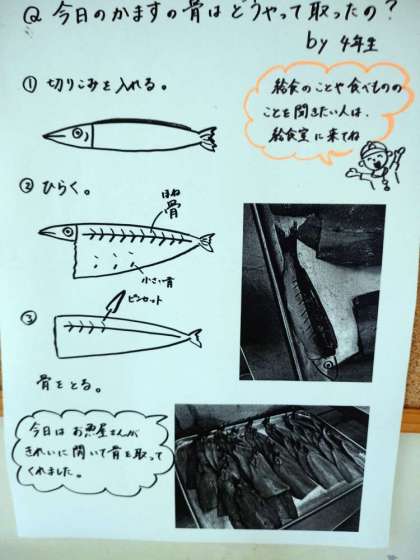 Q 今日のかますの骨はどうやって取ったの?
by 4年生
① 切りこみを入れる。
給食のことや食べものの
ことを聞きたい人は、
給食室に来てね
② ひらく。
ほね
骨
小さい骨
③
ピンセット
骨をとる。
今日はお魚屋さんが
きれいに開いて骨を取って
くれました。